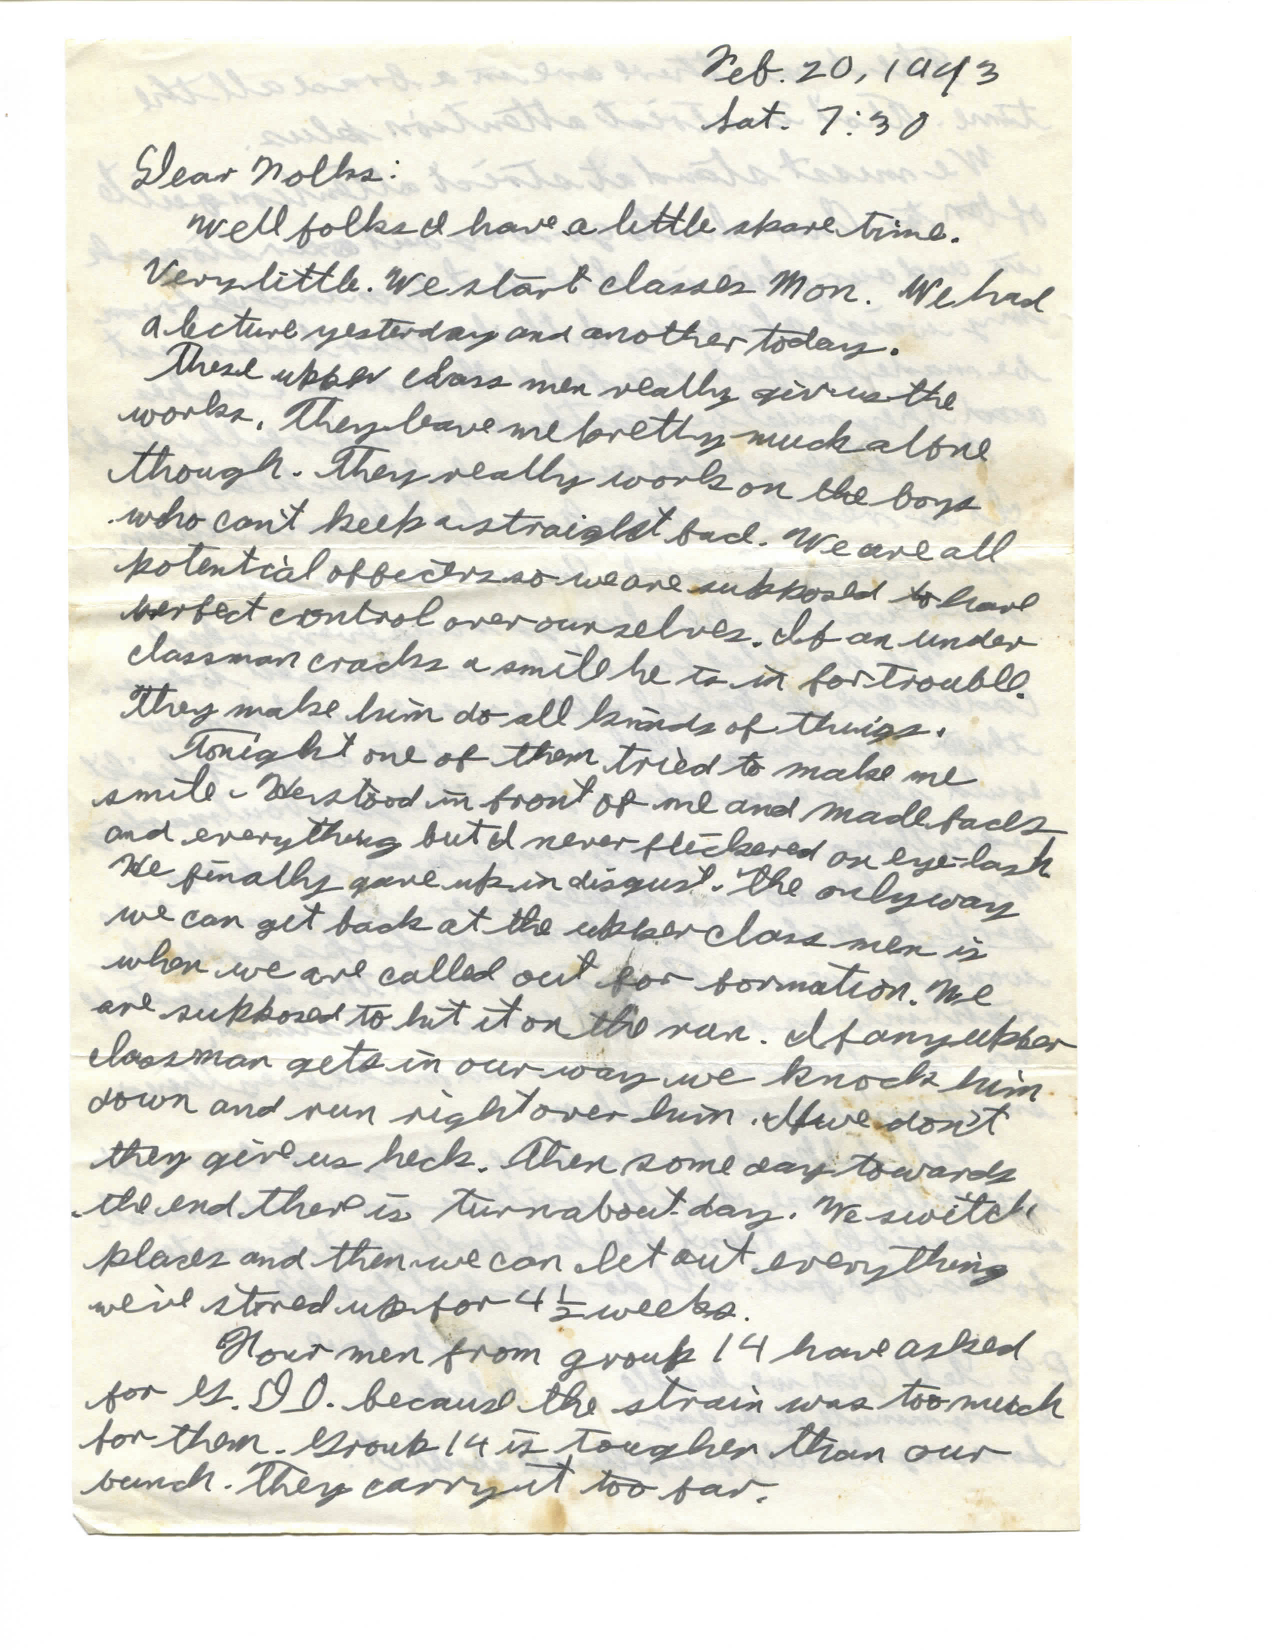 Feb. 20, 1943
Sat. 7:30
Dear Folks:
Well folks I have a little spare time.
Very little. We start classes Mon. We had
a lecture yesterday and another today.
These upper class men really give us the
works. They leave me pretty much alone
though. They really work on the boys
who can't keep a straight face. We are all
potential officers so we are supposed to have
perfect control over ourselves. If an under
classman cracks a smile he is in for trouble.
They make him do all kinds of things.
Tonight one of them tried to make me
smile. He stood in front of me and made faces
and everything but I never flickered an eye-lash
He finally gave up in disgust. The only way
we can get back at the upper class men is
when we are called out for formation. We
are supposed to hit it on the run. If any upper
classman gets in our way we knock him
down and run right over him. If we don't
they give us heck. Then some day towards
the end there is turnabout day. We switch
places and then we can let out everything
we've stored up for 4 1/2 weeks.
Four men from group 14 have asked
for G.D.O. because the strain was too much
for them. Group 14 is tougher than our
bunch. They carry it too far.